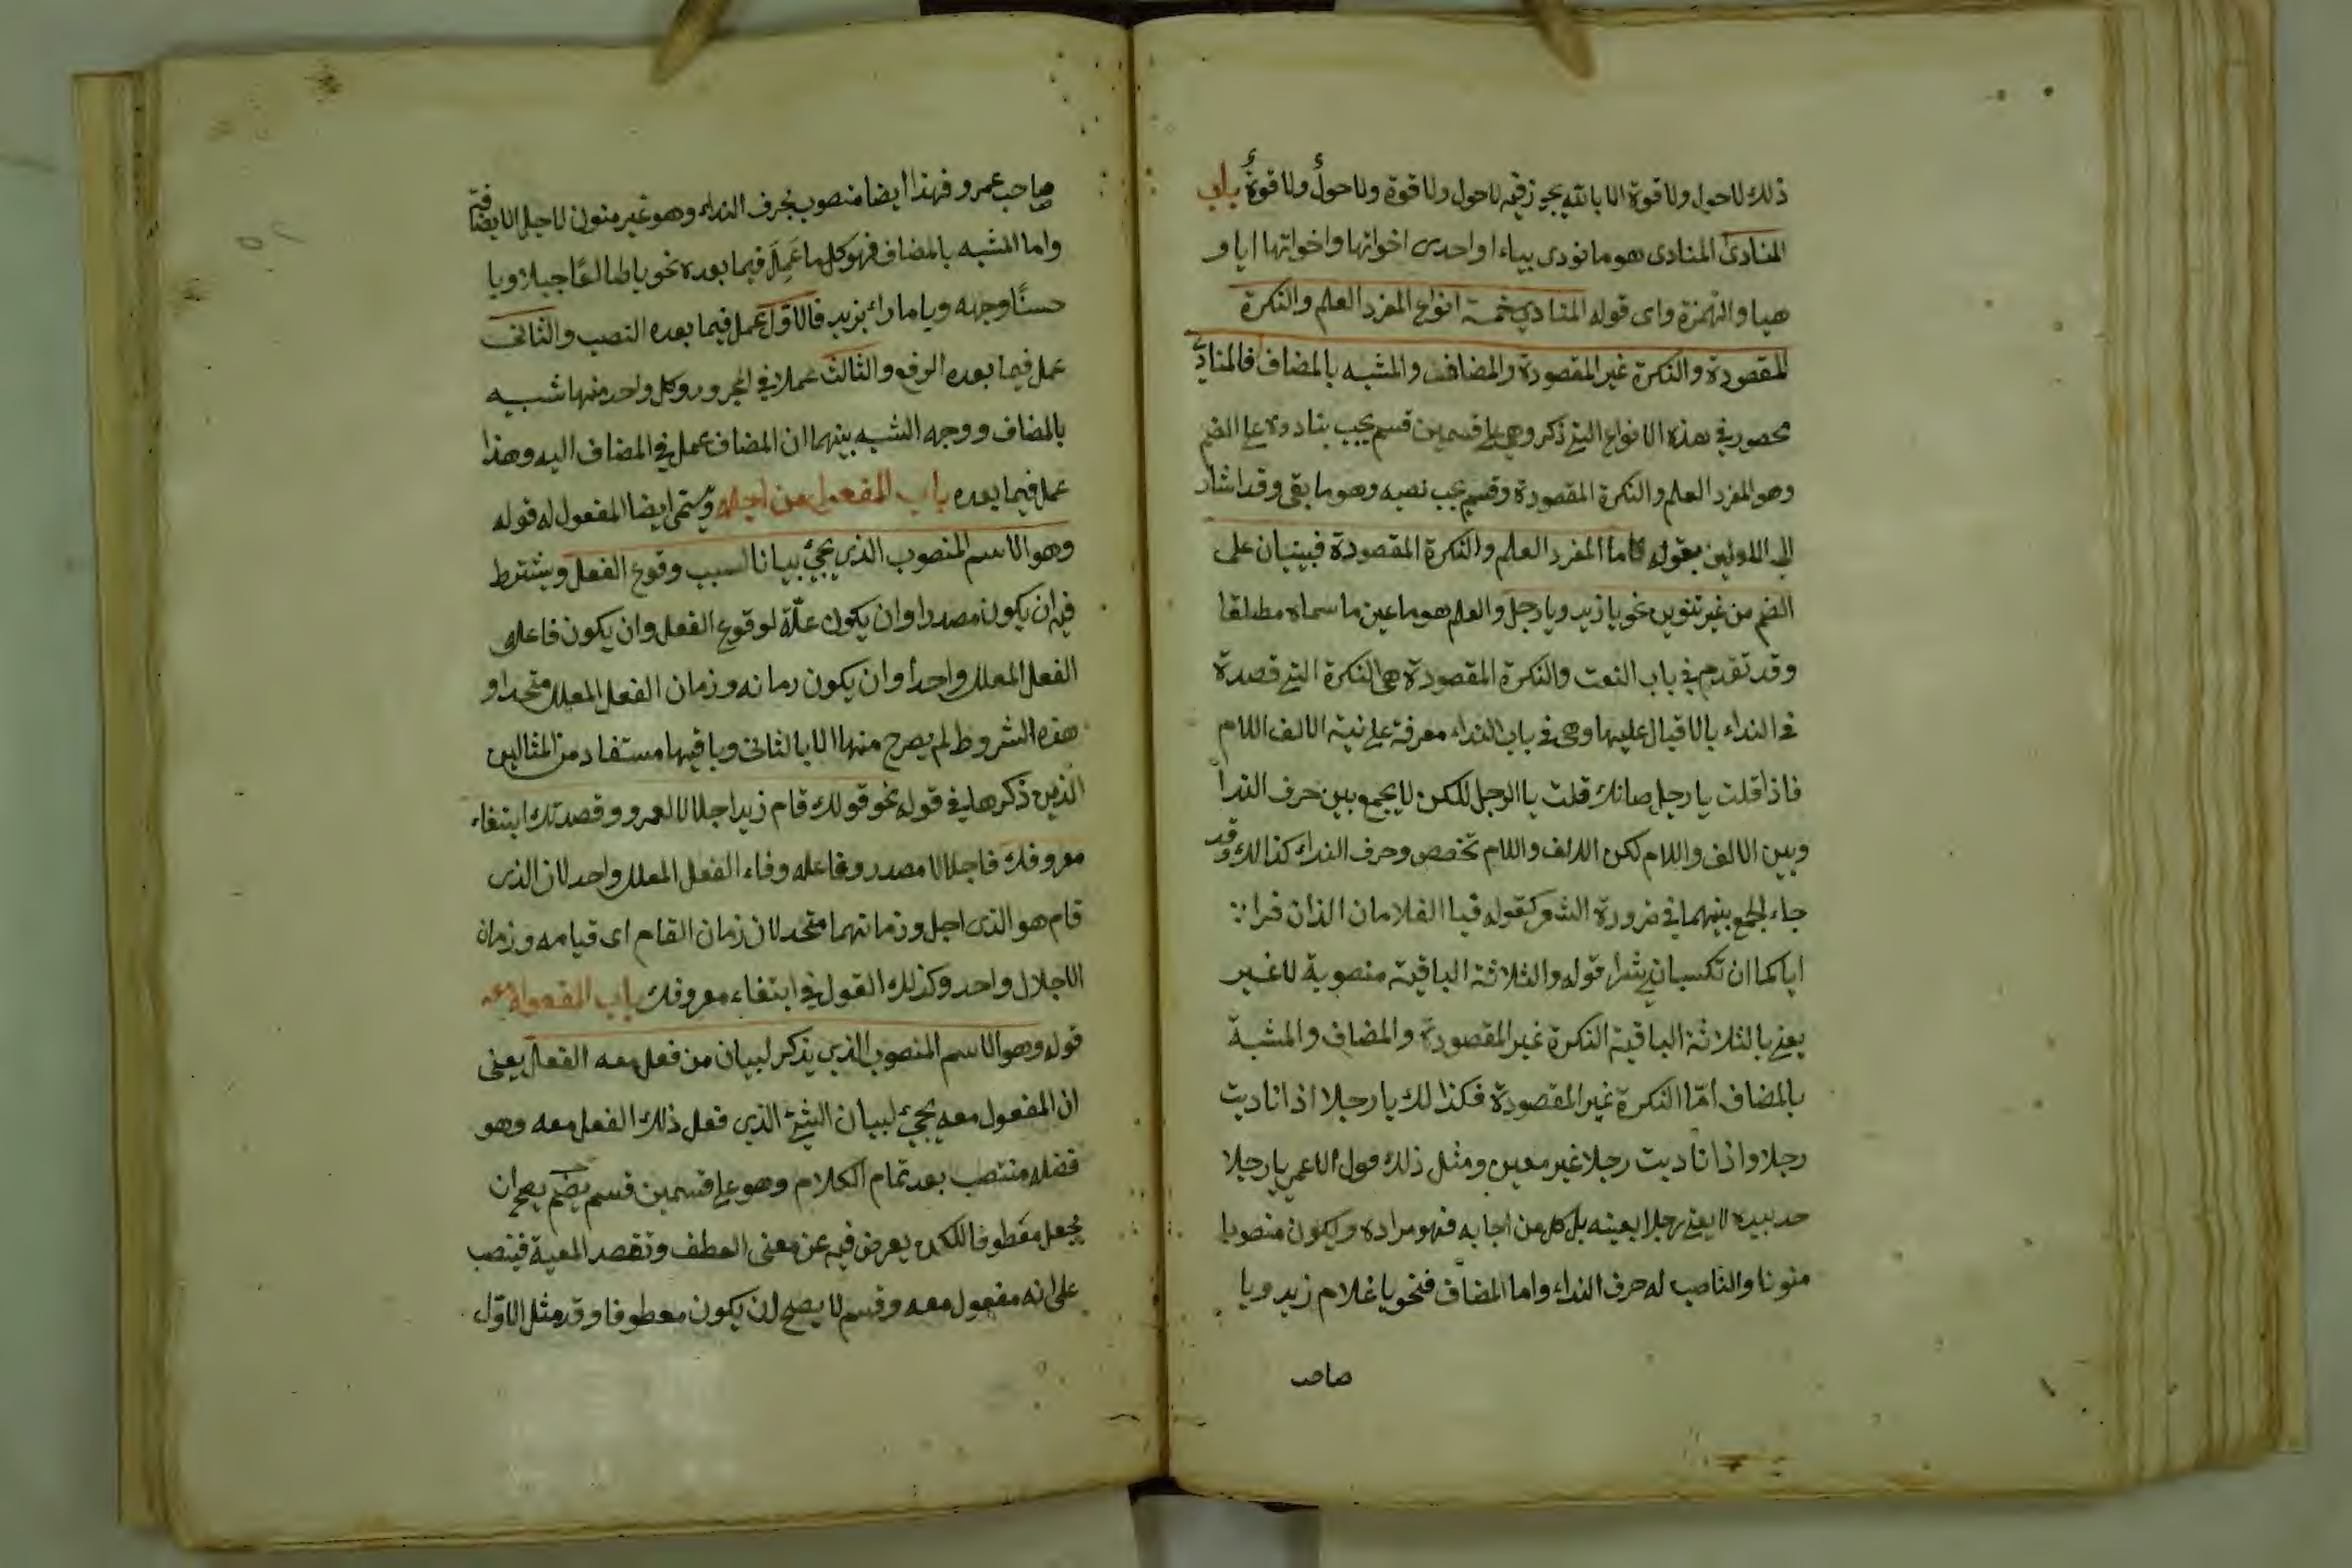 ذلك لاحول ولا قوة الا بالله يجوز فيه لاحول ولا قوة ولاحولٌ ولا قوةٌ باب
المنادى المنادى هو ما نودى بياء او احدى اخواتها واخواتها ايا و
هيا والهمزة واى قوله المنادي خمسة انواع المفرد العلم والنكرة
المقصودة والنكرة غير المقصودة والمضاف والمشبه بالمضاف فالمنادى
محصور في هذه الانواع التي ذكر وهي على قسمين قسم يجب بناوه على الضم
وهو المفرد العلم والنكرة المقصودة وقسم يجب نصبه وهو ما بقى وقد اشار
الى الاولين بقوله فاما المفرد العلم والنكرة المقصودة فيبنيان على
الضم من غير تنوين نحو يا زيد ويا رجل والعلم هو ما عين ما سماه مطلقا
وقد تقدم في باب النعت والنكرة المقصودة هي النكرة التي قصدة
في النداء بالاقبال عليها وهى في باب النداء معرفة على نية الالف اللام
فاذا قلت يا رجل صانك قلت يا الرجل لكن لا يجمع بين حرف الندا
وبين الالف واللام لكن الالف واللام تخصص وحرف النداء كذالك وقد
جاء الجمع بينهما في ضرورة الشعر كقوله فيا الغلامان الذان فرا
اياكما ان تكسبانى شرا قوله والثلاثة الباقية منصوبة لا غير
يعني بالثلاثة الباقية النكرة غير المقصودة والمضاف والمشبة
بالمضاف امّا النكرة غير المقصودة فكذالك يا رجلا اذا ناديت
رجلا واذا ناديت رجلا غير معين ومثل ذلك قول الاعمى يا رجلا
خد بيده لا يعني رجلا بعينه بل كل من اجابه فهو مراده ويكون منصوبا
منونا والناصب له حرف النداء واما المضاف فنحو يا غلام زيد ويا
صاحب
صاحب عمرو فهذا ايضا منصوب بحرف النداء وهو غير منون لاجل الاضافة
واما المشبه بالمضاف فهو كل ما عَمِلَ فيما بعده نحو يا طالعًا جبلا ويا
حسنًا وجهه ويا مارا بزيد فالاول عمل فيما بعده النصب والثانى
عمل فيما بعده الرفع والثالث عملا في المجرور وكل واحد منها شبيه
بالمضاف ووجه الشبه بينهما ان المضاف عمل في المضاف اليه وهذا
عمل فيما بعده باب المفعول من اجله ويسمّى ايضا المفعول له قوله
وهو الاسم المنصوب الذي يجئ بيانا لسبب وقوع الفعل ويشترط
فيه ان يكون مصدرا وان يكون علّة لوقوع الفعل وان يكون فاعله
الفعل المعلل واحدا وان يكون زمانه وزمان الفعل المعلل متحدا و
هذه الشروط لم يصرح منها الا بالثانى وباقيها مستفاد من المثالين
الذين ذكرها في قوله نحو قولك قام زيد اجلالا لعمرو وقصدتك ابتغاء
معروفك فاجلالا مصدر وفاعله وفاء الفعل المعلل واحد لان الذى
قام هو الذى اجل وزمانهما متحد لان زمان القام اى قيامه وزمان
الاجلال واحد وكذلك القول في ابتغاء معروفك باب المفعول معه
قوله وهو الاسم المنصوب الذي يذكر لبيان من فعل معه الفعل يعنى
ان المفعول معه يجئ لبيان الشئ الذي فعل ذلك الفعل معه وهو
فضله منتصب بعد تمام الكلام وهو على قسمين قسم يصح ان
يُجعل معطوفا لكن يعرض فيه عن معنى العطف وتقصد المعية فينصب
على انه مفعول معه وقسم لا يصح ان يكون معطوفا وقد مثل الاوّل